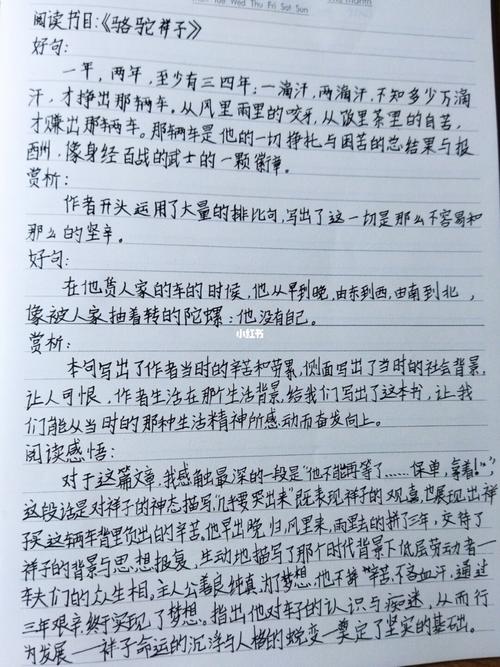 Mon Tue Wed Thu Fri Sat Sun
阅读书目:《骆驼祥子》
好句:
一年,两年,至少有三四年;一滴汗,两滴汗,不知多少万滴
汗,才挣出那辆车。从风里雨里的咬牙,从饭里茶里的自苦,
才赚出那辆车。那辆车是他的一切挣扎与困苦的总结果与报
酬,像身经百战的武士的一颗徽章。
赏析:
作者开头运用了大量的排比句,写出了这一切是那么不容易和
那么的坚辛。
好句:
在他赁人家的车的时候,他从早到晚,由东到西,由南到北,
像被人家抽着转的陀螺;他没有自己。
小红书
赏析:
本句写出了作者当时的辛苦和劳累,侧面写出了当时的社会背景,
让人可恨,作者生活在那个生活背景,给我们写出了这本书,让我
们能从当时的那种生活精神所感动而奋发向上。
阅读感悟:
对于这篇文章,我感触最深的一段是“他不能再等了……保单,拿着!”,
这段话是对祥子的神态描写,“几乎要哭出来”既表现祥子的观喜,也展现出祥
子买这辆车背里负出的辛苦。他早出晚归,风里来,雨里去的拼了三年,交待了
祥子的背景与思想报复,生动地描写了那个时代背景下低层劳动者—
车夫们的众生相。主人公善良纯真,为了梦想,他不辞辛苦,不吝血汗,通过
三年艰辛终于实现了梦想。指出他对车子的认识与痴迷,从而行
为发展——祥子命运的沉浮与人格的蜕变一奠定了坚实的基础。